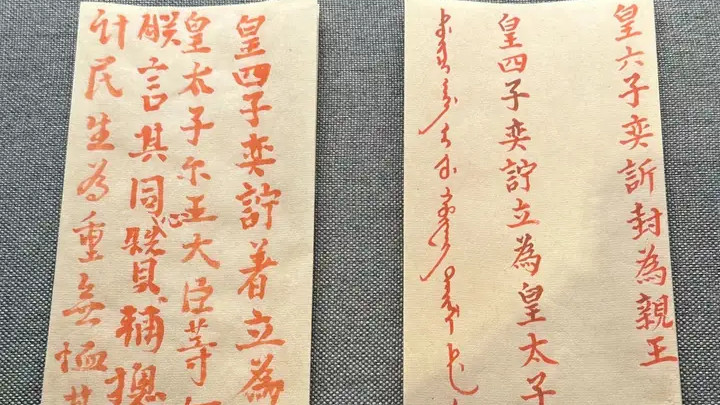 皇六子奕訢封為親王
皇四子奕詝立為皇太子
皇四子奕詝著立為
皇太子尔王大臣等
朕言其同心賛輔總
計民生為重無恤